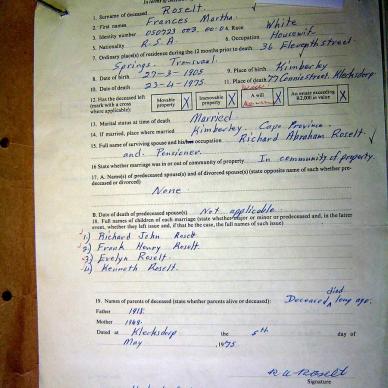 1. Surname of deceased Roselt
2. First names Frances Martha.
3. Identity number 050723 003. 00. 0a. Race White
5. Nationality R.S.A. 6. Occupation Housewife
7. Ordinary place(s) of residence during the 12 months prior to death 36 Eleventh street
Springs. Transvaal.
8. Date of birth 27-3-1905 9. Place of birth Kimberley
10. Date of death 23-4-1975. 11. Place of death 77 Connie street. Klerksdorp
12. Has the deceased left (mark with a cross where applicable): Movable property X Immovable property X A will X An estate exceeding R2,000 in value X
13. Marital status at time of death Married
14. If married, place where married Kimberley. Cape Province.
15. Full name of surviving spouse and his occupation Richard Abraham Roselt.
and Pensioner.
16 State whether marriage was in or out of community of property In community of property.
17. A. Name(s) of predeceased spouse(s) and divorced spouse(s) (state opposite name of each whether predeceased or divorced)
None
B. Date of death of predeceased spouse(s) Not applicable
18. Full names of children of each marriage (state whether major or minor or predeceased and, in the latter
event, whether they left issue and, if that be the case, the full names of such issue)
1) Richard John Roselt
2) Frank Henry Roselt
3) Evelyn Roselt.
4) Kenneth Roselt.
19. Names of parents of deceased (state whether parents alive or deceased): Deceased died long ago.
Father 1918.
Mother
Dated at Klerksdorp the 5th day of
May 1975.
R A Roselt
Signature